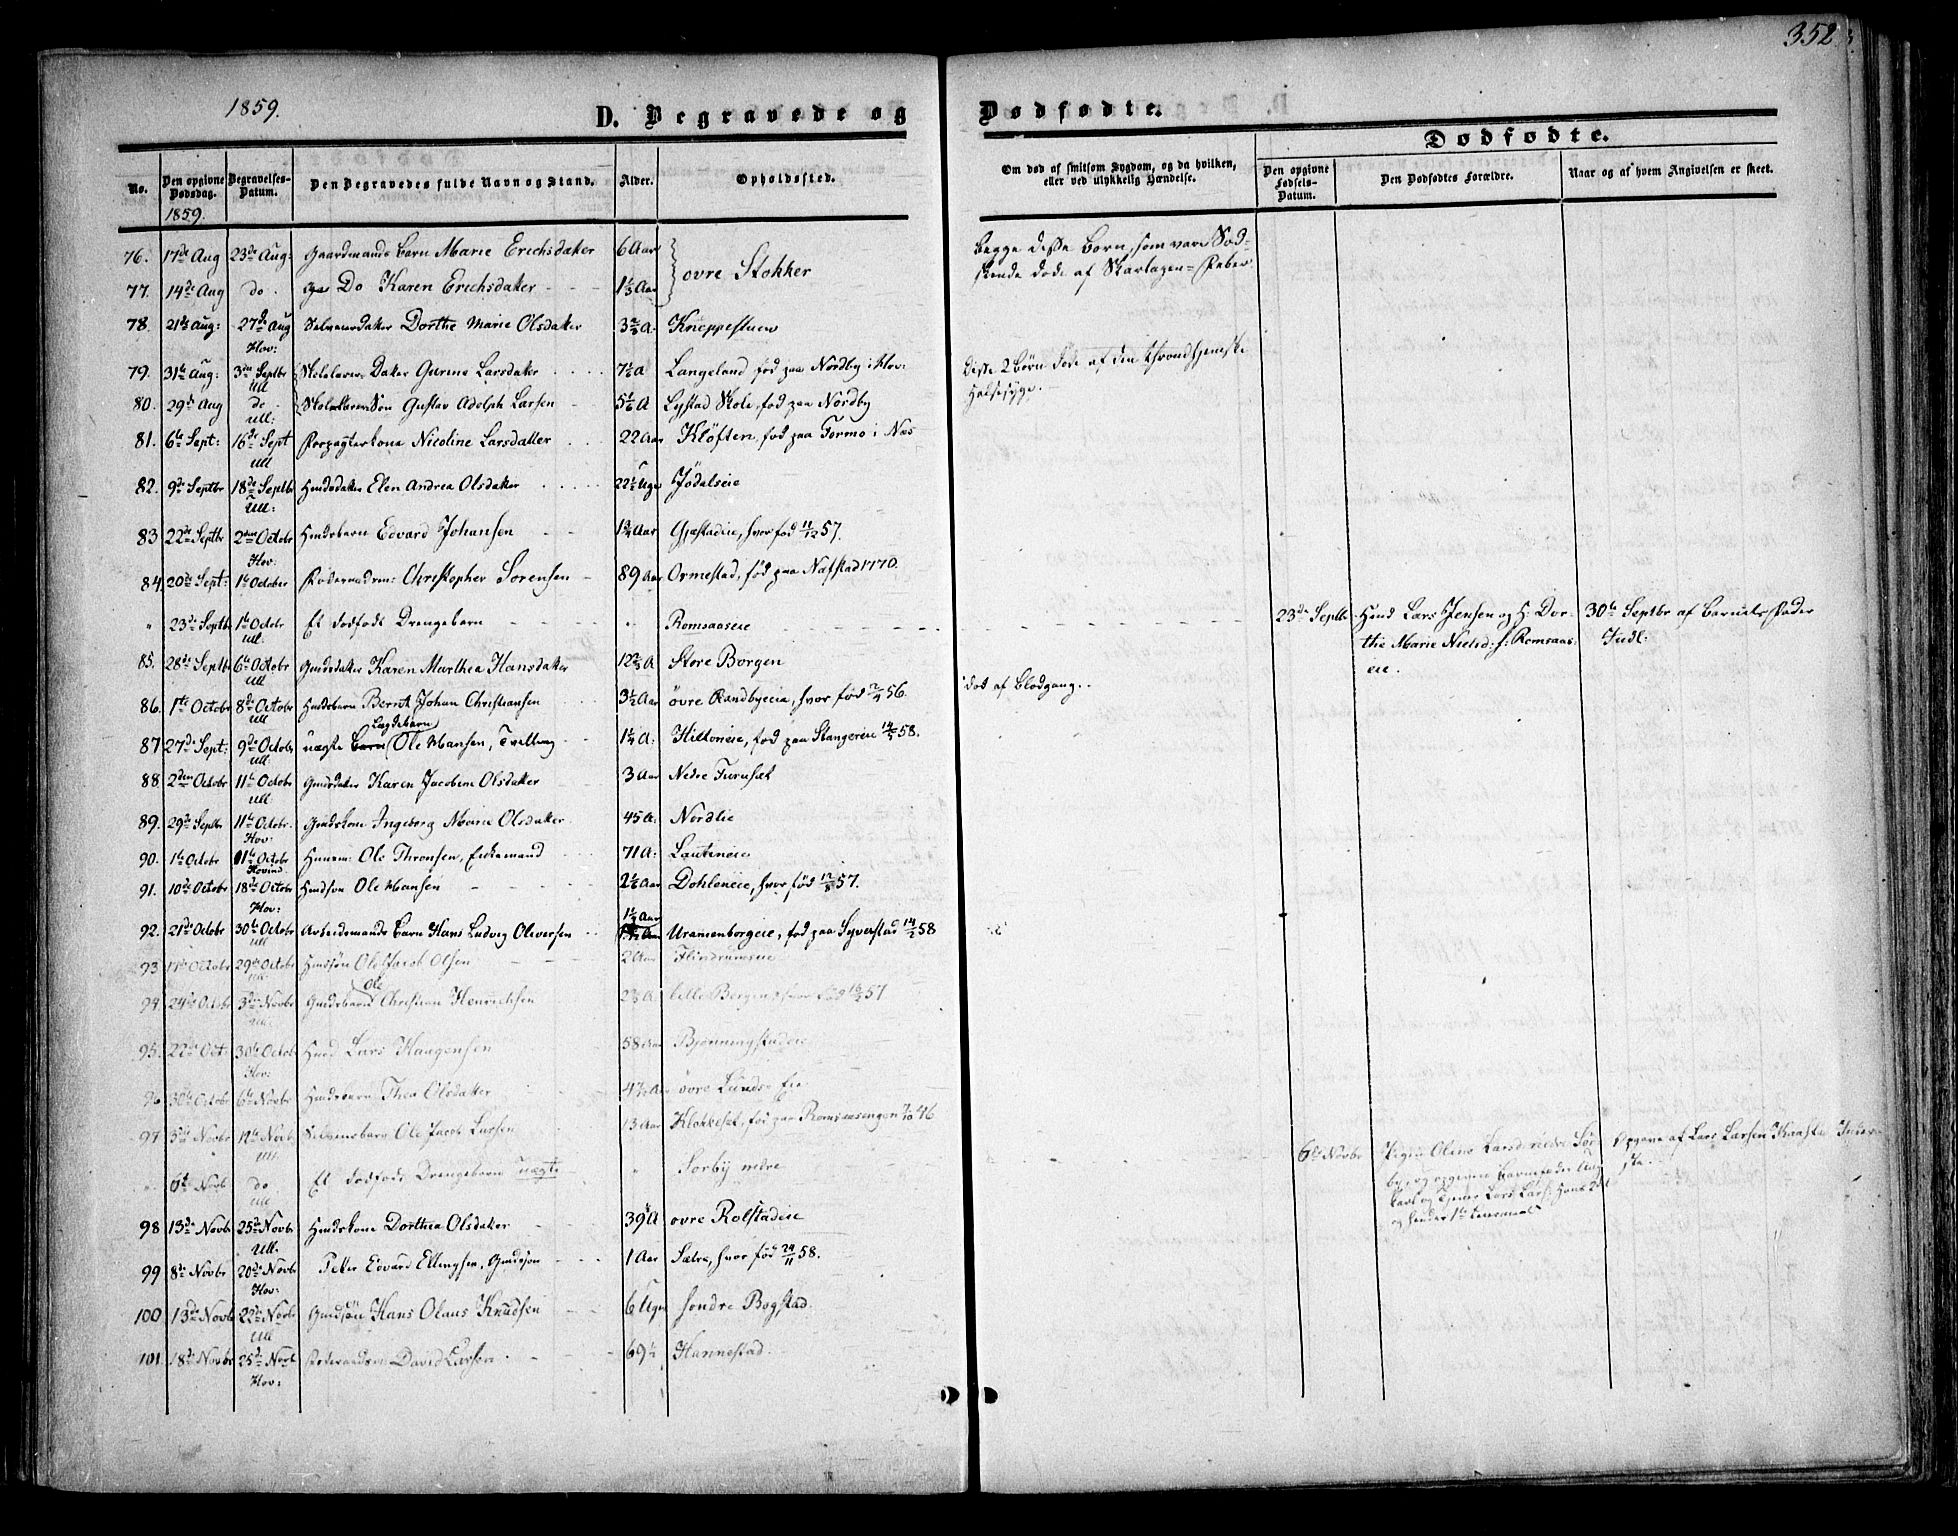 352
1859.
D. Begravede og
Dødfødte.
Dødfødte.
No.
Den opgivne Dødsdag.
Begravelses-Datum.
Den Begravedes fulde Navn og Stand.
Alder.
Opholdssted.
Om død af smitsom Sygdom, og da hvilken, eller ved ulykkelig Hændelse.
Den opgivne Fødsels-Datum.
Den Dødfødtes Forældre.
Naar og af hvem Angivelsen er skeet.
1859.
76. 17de Aug 23de Aug: Gaardmands Barn Marie Erichsdatter 6 Aar
øvre Stokker
Begge disse Børn, som vare Sød-
skende døde af Skarlagen=Feber
77. 14de Aug do. Do Karen Erichsdatter 1 1/3 Aar
78. 21de Aug: 27de Aug Dorthe Marie Olsdatter 3 2/3 A. Kneppestuen
Hov:
79. 31te Aug: 3die Septbr Datter Gurine Larsdatter 7 1/2 A Langeland fød paa Nordby i Hov:
Disse 2 Børn døde af den throndhjemske
Halssyge.
Ull
80. 29de Aug do Søn Gustav Adolph Larsen 5 1/6 A Lystad Skole, fød paa Nordby
Ull:
81. 6te Sept: 16de Sept Forpagterkone Nicoline Larsdatter 22 Aar Kløften, fød paa Tormo i Næs
Ull
82. 9de Septbr 18de Septbr Huusdatter Elen Andrea Olsdatter 22 1/2 Uge Jødalseie
Ull:
83 22de Septbr 2den Octobr Huusbarn Edvard Johansen 1 3/4 Aar Gjestadeie, hvor fød 11/12 57.
Hov:
84. 20de Sept: 1te October Christopher Sørensen 89 Aar Ormestad, fød paa Nafstad 1770.
" 23de Septbr 1te Octobr Et dødfødt Drengebarn " Romsaaseie
23de Septbr. Huusm Lars Jensen og H. Dor-
thie Marie Nielsd: f: Romsaas-
eie.
30te Septbr af Barnets Fader
Ull.
85. 28de Septbr 6te Octobr Gaardsdatter Karen Marthea Hansdatter 12 2/3 A Store Borgen
Ull
86. 1te Octobr 8de Octobr Huusbarn Bernt Johan Christiansen 3 1/2 Aar øvre Randbyeie, hvor fød 56.
død af Blodgang.
Ull
Lægdebarn
87 27de Sept: 9de Octobr uægte Barn Ole Hansen, Tvilling 1 1/4 A: Hiltoneie, fød paa Stangereie 14/5 58.
Ull
88 2den Octobr 11te Octobr Gaardsdatter Karen Jacobine Olsdatter 3 Aar Nedre Furuset
Ull
89. 29de Septbr 11te Octobr. Gaardskone Ingeborg Marie Olsdatter 45 A. Nordlie
Hov:
90. 1te Octobr 11te Octobr Huusm: Ole Thronsen, Enkemand 71 A: Lauteneie
Hovind
91. 10de Octobr 18de Octobr Huusson Ole Hansen 2 1/6 Aar Dohleneie, hvor fød 12/8 57.
Hov:
1 1/2 Aar
92. 21de Octobr 30te Octobr Arbeidsmands Barn Hans Ludvig Oliversen Uranienborgeie, fød paa Syverstad 14/2 58
Ull
93 17de Octobr 29de Octobr Huussøn Ole Jacob Olsen 2 Aar Flindrumseie
Ull
Ole
94. 24de Octobr 3die Novbr Gaardsbarn Christian Henrichsen 2 A. lille Borgen, hvor fød 16/2 57
Ull.
95. 22de Oct: 30te Octobr Huusm Lars Haagensen 58 Aar Bjønningstadeie
Hov:
96 30te Octobr 6te Novbr Huusbarn Thea Olsdatter 4 1/2 Aar øvre Lunds Eie
97 5te Novbr 12te Novbr Ole Jacob Larsen 13 Aar Klokkeset, fød paa Romsaasengen 46
Ull.
" 6te Novbr do Et dødfødt Drengebarn uægte " Sørby nedre
6te Novbr Pige Oline Larsd nedre Sør-
by, og opgiven Barnefader Ung-
karl og Tjener Lars Lars:
og hendes 1te Leiermaal
Opgave af Lars Larsen
Ull
98 13de Novbr 25de Novbr Huuskone Dorthea Olsdatter 39 A øvre Rolstadeie
Ull.
99 8de Novbr 20de Novbr Peter Edvard Ellingsen, Gaardsøn 1 Aar Sætre, hvor fød 29/11 58.
Hov:
100 13de Novbr 22de Novbr Gaardsøn Hans Olaus Knudsen 6 Uger søndre Bogstad
Ull
101. 18de Novbr 25de Novb David Larsen 69 1/2 Hannestad
Hov: